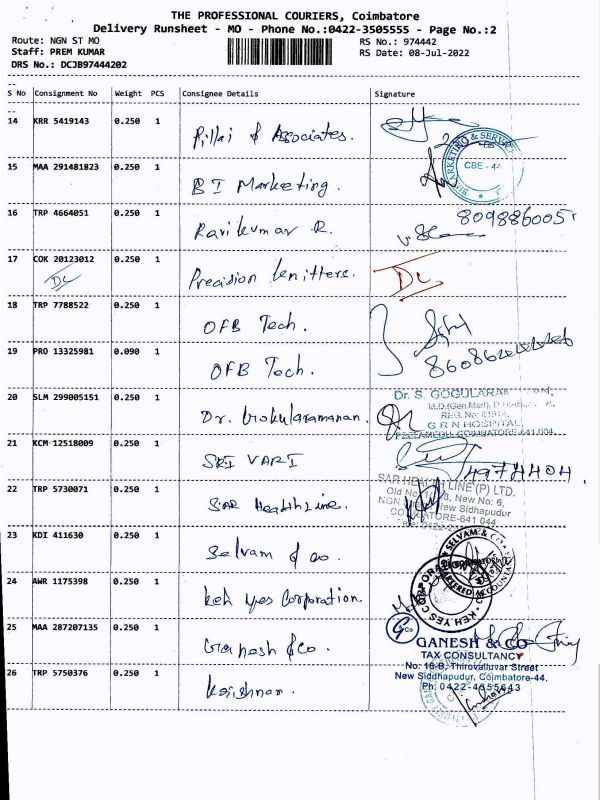 THE PROFESSIONAL COURIERS, Coimbatore
Delivery Runsheet - MO - Phone No.:0422-3505555 - Page No.:2
Route: NGN ST MO
RS No.: 974442
Staff: PREM KUMAR
RS Date: 08-Jul-2022
DRS No.: DCJB97444202
S No Consignment No Weight PCS Consignee Details Signature
14 KRR 5419143 0.250 1 Pillai & Associates.
15 MAA 291481823 0.250 1 B I Marketing. CBE - 44
16 TRP 4664051 0.250 1 Ravikumar R. 8098860051
17 COK 20123012 0.250 1 Precision knitters. DL
DL
18 TRP 7788522 0.250 1 OFB Tech.
19 PRO 13325981 0.090 1 OFB Tech.
20 SLM 299005151 0.250 1 Dr. Gokularamanan.
Dr. S.
G R N HOSPITAL,
PEELAMEDU, COIMBATORE-641 004.
21 KCM 12518009 0.250 1 SRI VARI
22 TRP 5730071 0.250 1 SAR HealthLine.
SAR HEALTH LINE (P) LTD.
New No: 6,
New Sidhapudur
COIMBATORE-641 044
23 KDI 411630 0.250 1 Selvam & co.
SELVAM & CO
CHARTERED ACCOUNTANTS
24 AWR 1175398 0.250 1 Keh yes Corporation.
KEH YES CORPORATION
25 MAA 287207135 0.250 1 Ganesh & Co.
GCo
GANESH & CO
TAX CONSULTANCY
No: 16-B, Thiruvalluvar Street
New Siddhapudur, Coimbatore-44.
Ph: 0422-4355643
26 TRP 5750376 0.250 1 Krishnan.